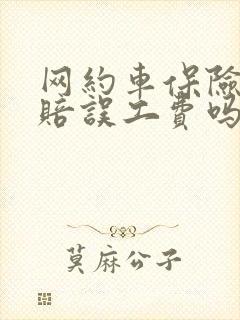 网約車保險
賠誤工費嗎
莫麻公子